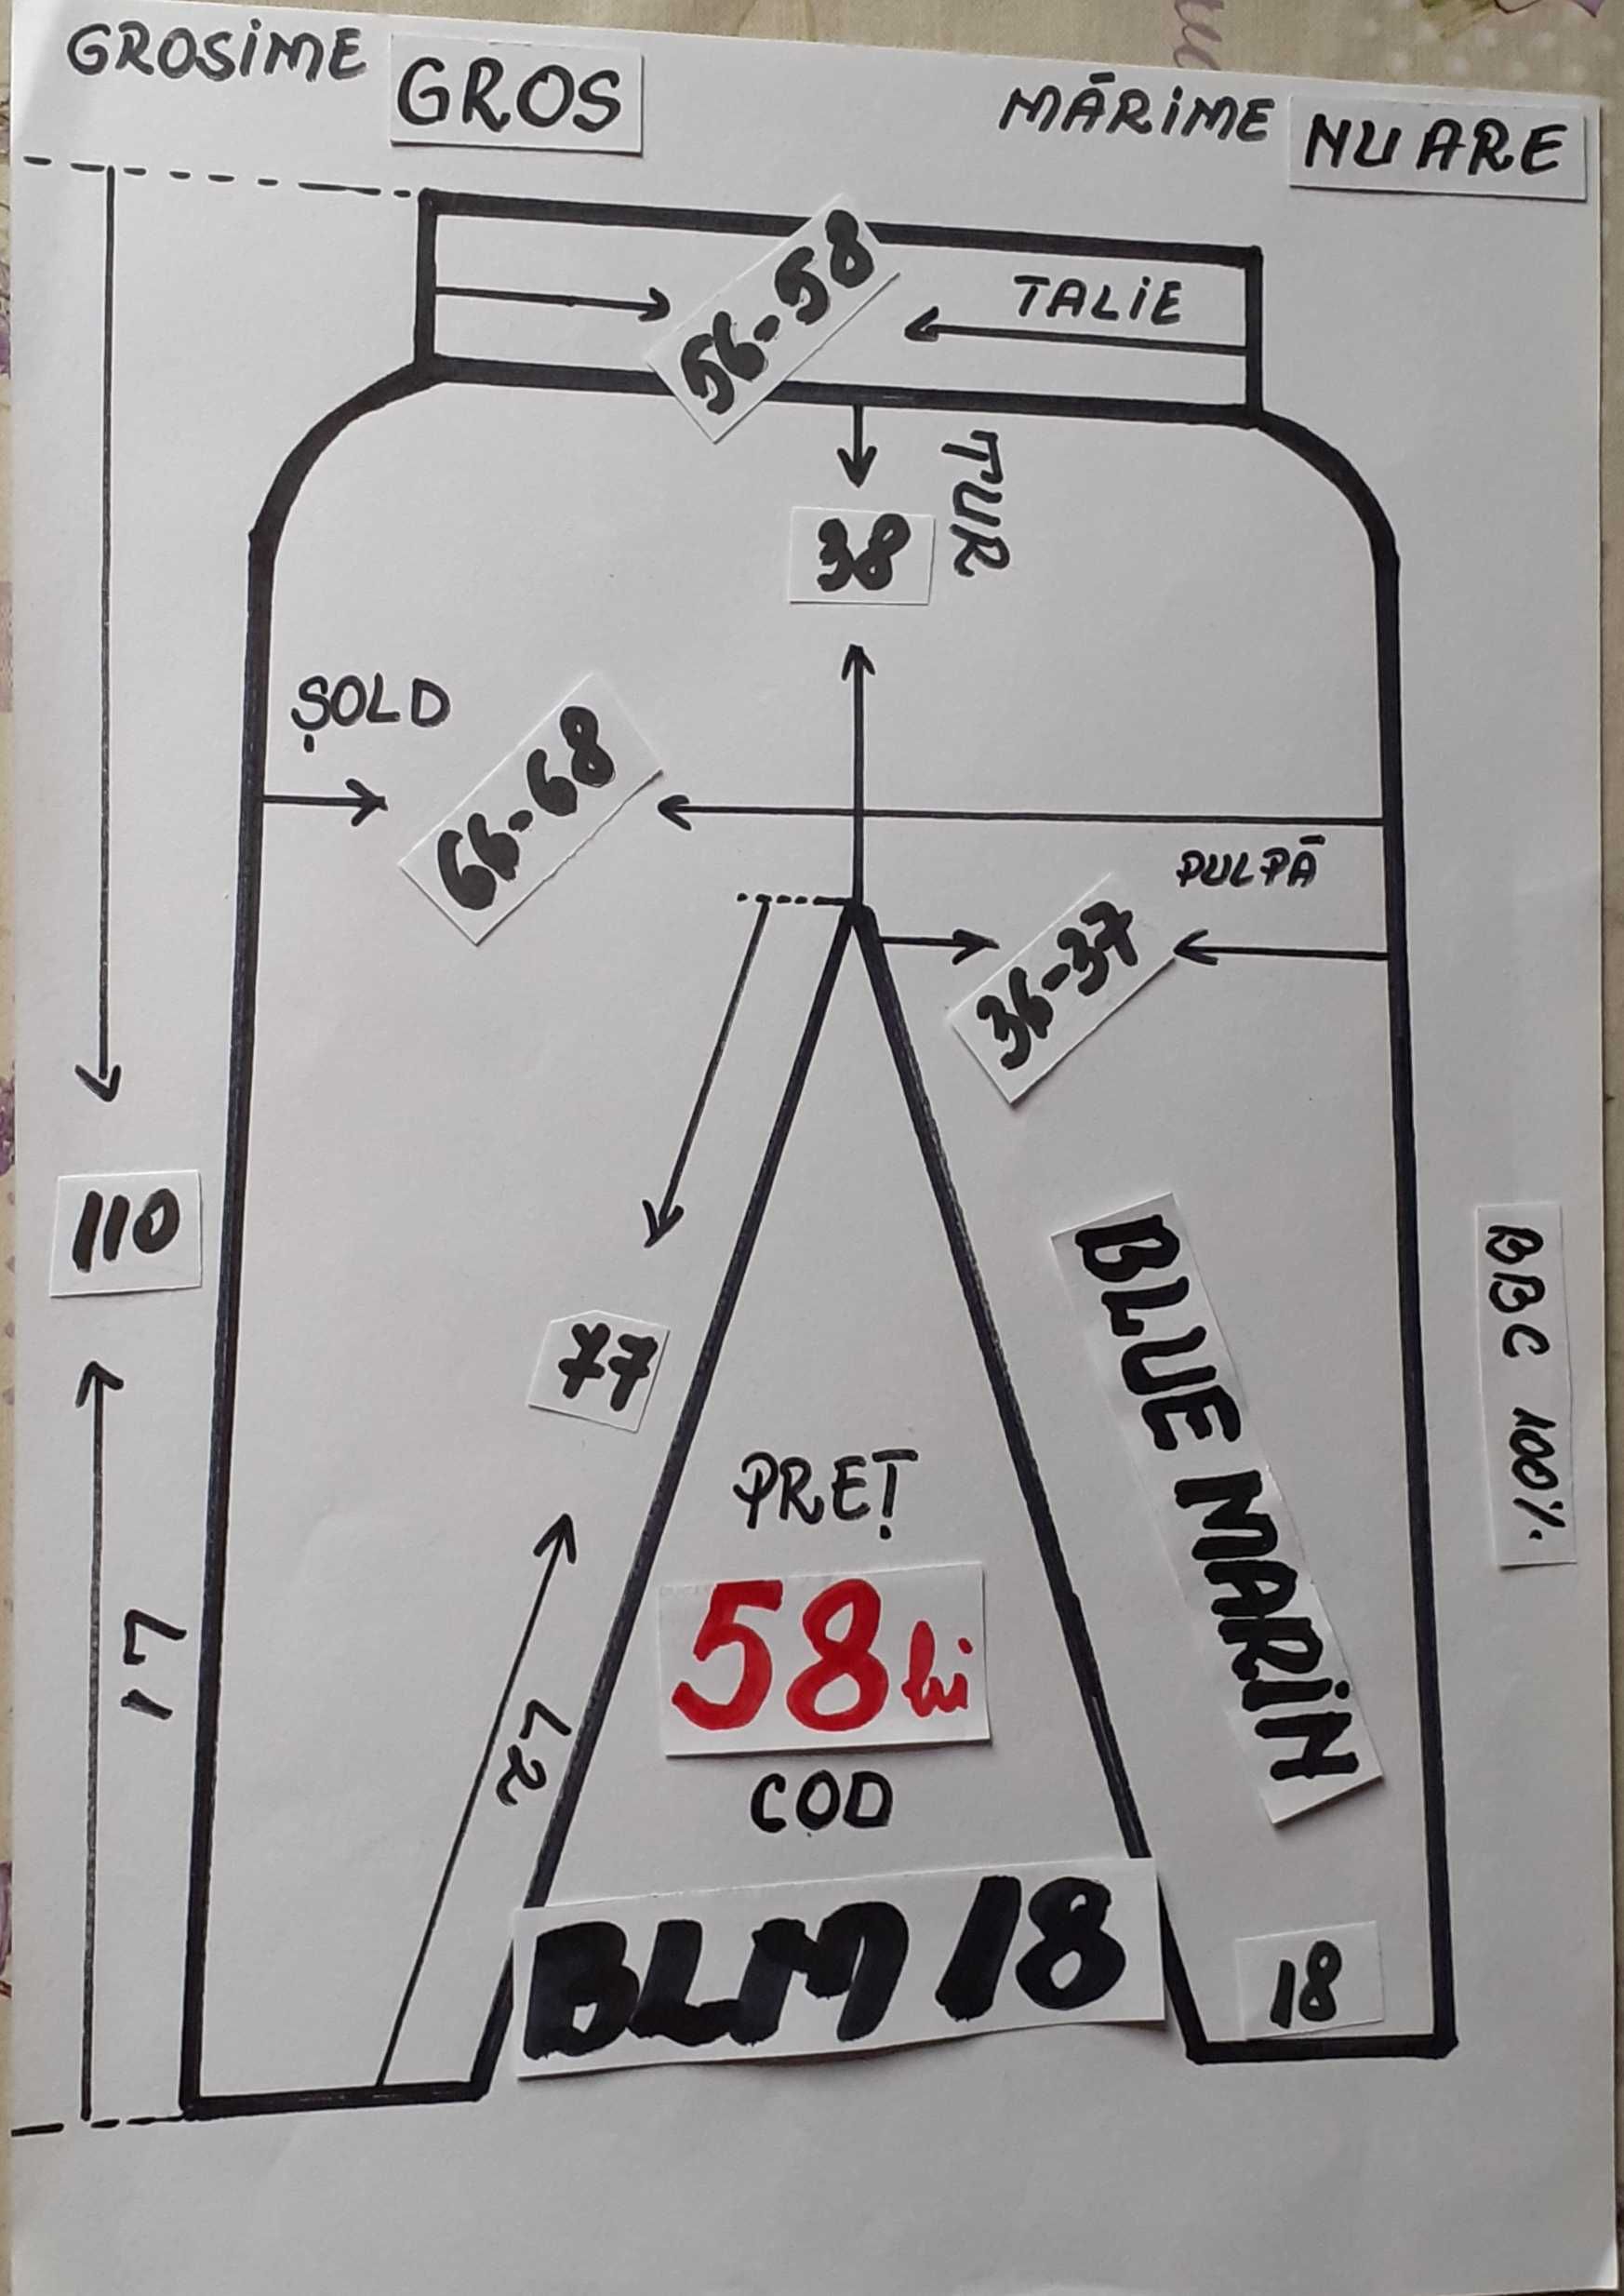 GROSIME GROS
MĂRIME NU ARE
TALIE
56-58
TUR
38
ȘOLD
66-68
PULPĂ
36-37
110
L1
77
L2
BLUE MARIN
BBC 100%
PREȚ
58 lei
COD
BLM 18
18